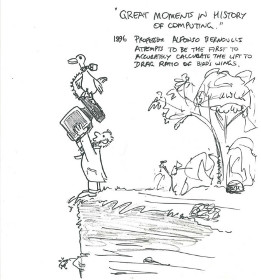 "GREAT MOMENTS IN HISTORY
OF COMPUTING."
1896 PROFESSOR ALFONSO BERNOULLIS
ATTEMPTS TO BE THE FIRST TO
ACCURATELY CALCULATE THE LIFT TO
DRAG RATIO OF BIRD'S WINGS.